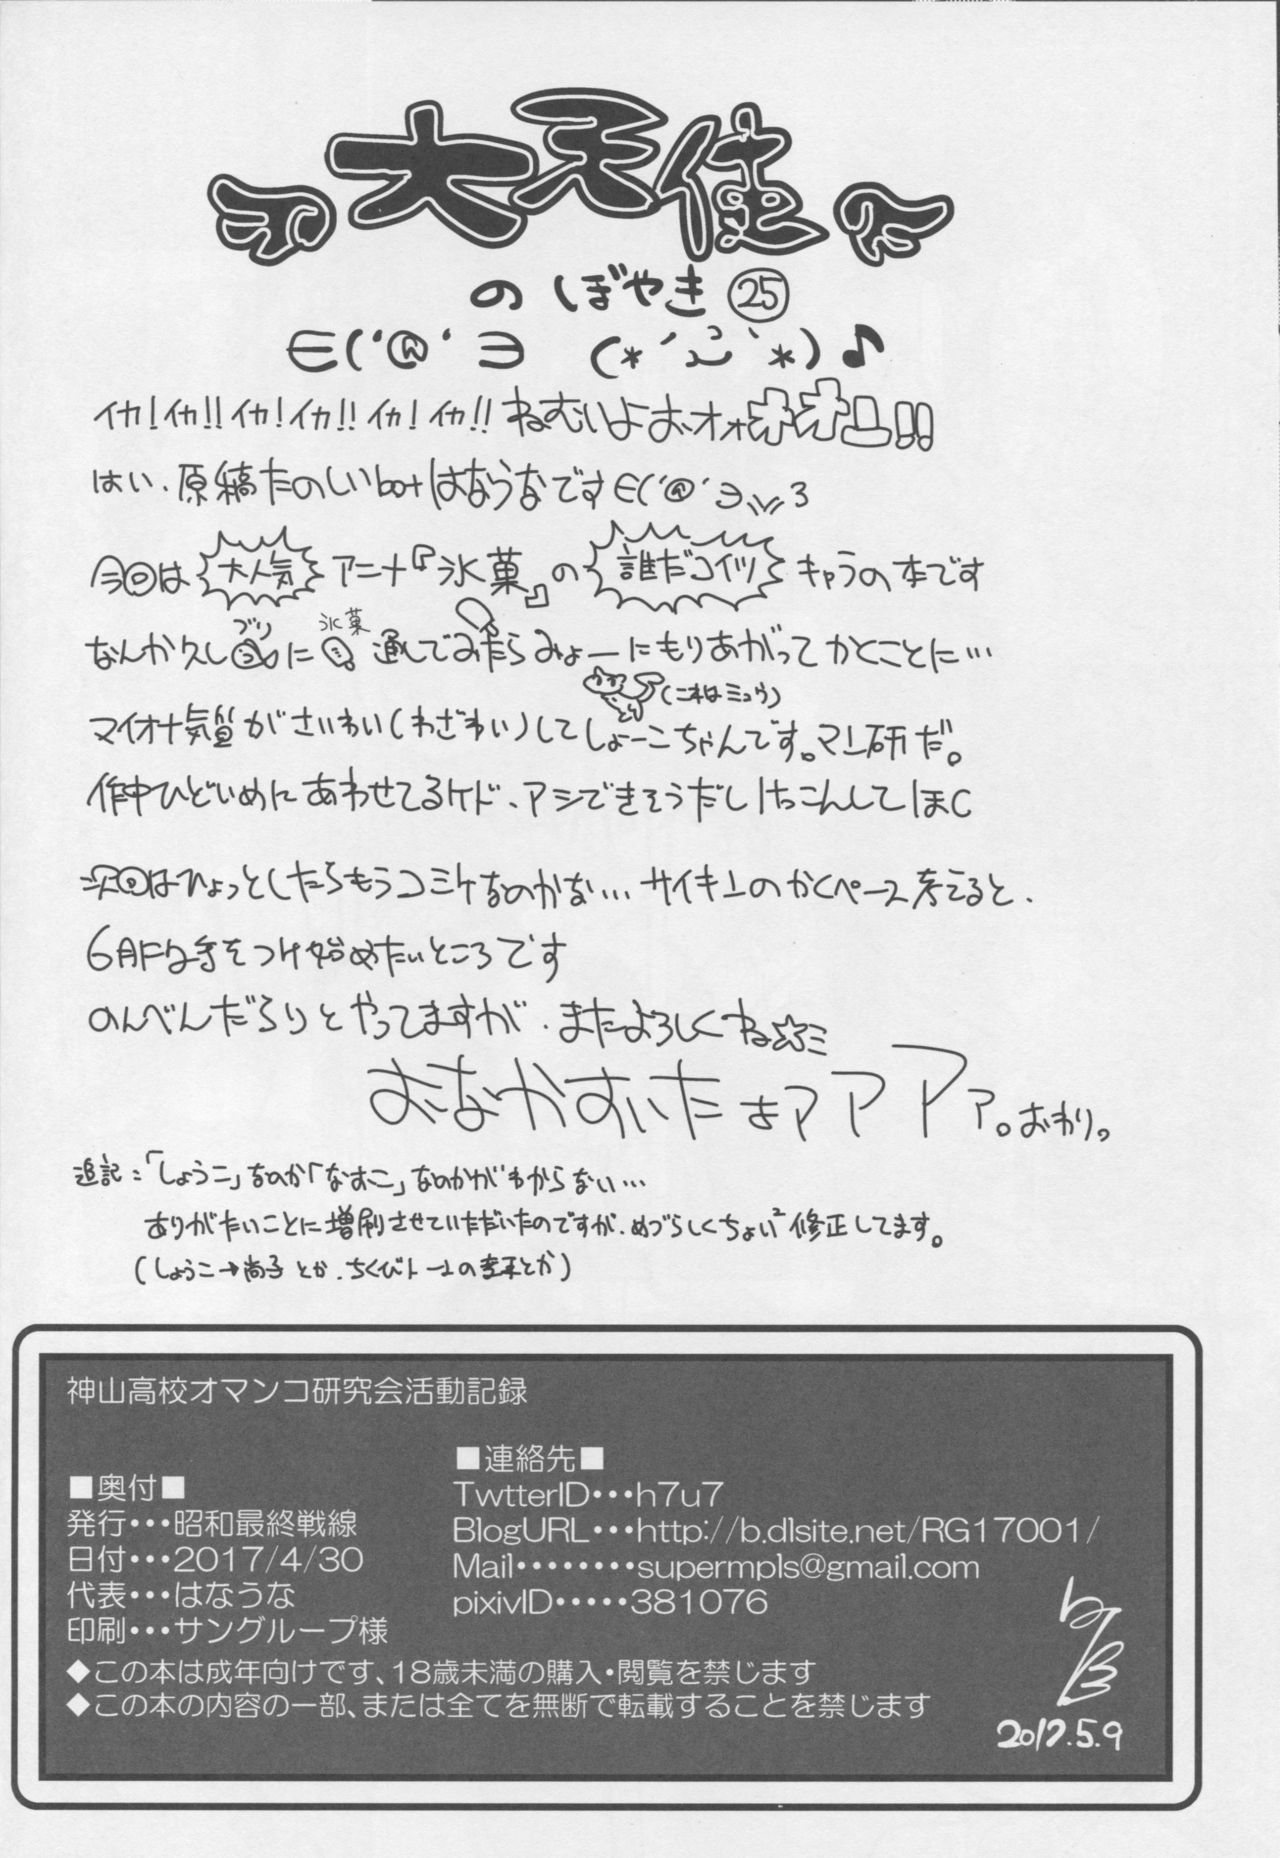 大天使
のぼやき㉕
∈('@'∋ (*´ω`*)♪
イカ!イカ!!イカ!イカ!!イカ!イカ!!ねむいよおオォオオユ!!
はい、原稿たのしいbotはなうなです∈('@'∋ 3
今回は大人気アニメ『氷菓』の誰だコイツキャラの本です
ブリ 氷菓
なんか久しに 通してみたらみょーにもりあがってかくことに…
(これはミュウ)
マイオナ気質がさいわい(わざわい)してしょーこちゃんです。マン研だ。
作中ひどいめにあわせてるケド、アシできそうだしけっこんしてほC
次回はひょっとしたらもうコミケなのかな…サイキンのかくペース考えると、
6月には手をつけ始めたいところです
のんべんだらりとやってますが、またよろしくね☆ミ
おなかすいたよアアアァ。おわり。
追記:「しょうこ」なのか「なおこ」なのかがわからない…
ありがたいことに増刷させていただいたのですが、めづらしくちょい²修正してます。
(しょうこ→尚子とか、ちくびトーンの とか)
神山高校オマンコ研究会活動記録
■奥付■
発行・・・昭和最終戦線
日付・・・2017/4/30
代表・・・はなうな
印刷・・・サングループ様
■連絡先■
TwtterID・・・h7u7
BlogURL・・・http://b.dlsite.net/RG17001/
Mail・・・・・・・・supermpls@gmail.com
pixivID・・・・・381076
◆この本は成年向けです、18歳未満の購入・閲覧を禁じます
◆この本の内容の一部、または全てを無断で転載することを禁じます
2017.5.9